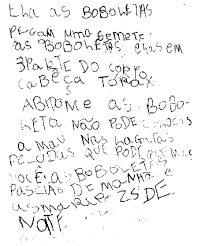 AS BOBOLETAS
PEGAM UMA SEMETE
AS BOBOLETAS ELAS EM
3 PARTE DO CORPO
CABEÇA TORAX
ABDOME AS BOBO-
LETA NÃO PODE
A MAU NAS LAGATAS
PELUDAS QUE PODE
VOCE AS BOBOLETAS
PASCIAO DE MANHA E
AS MARIPOZS DE
NOITE